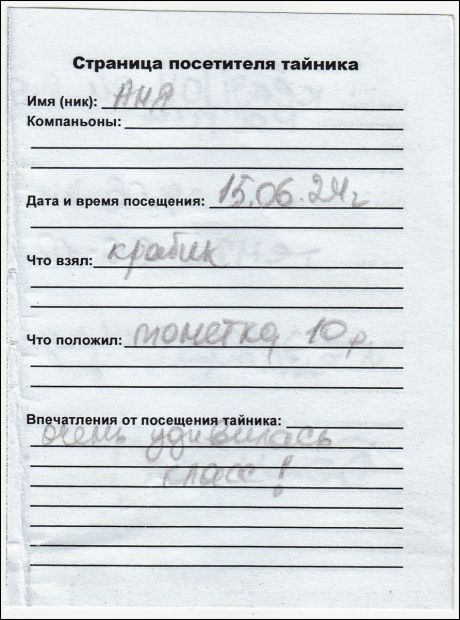 Страница посетителя тайника
Имя (ник): Аня
Компаньоны:
Дата и время посещения: 15.06.24г
Что взял: крабик
Что положил: монетка 10 р.
Впечатления от посещения тайника:
очень удивилась
класс!